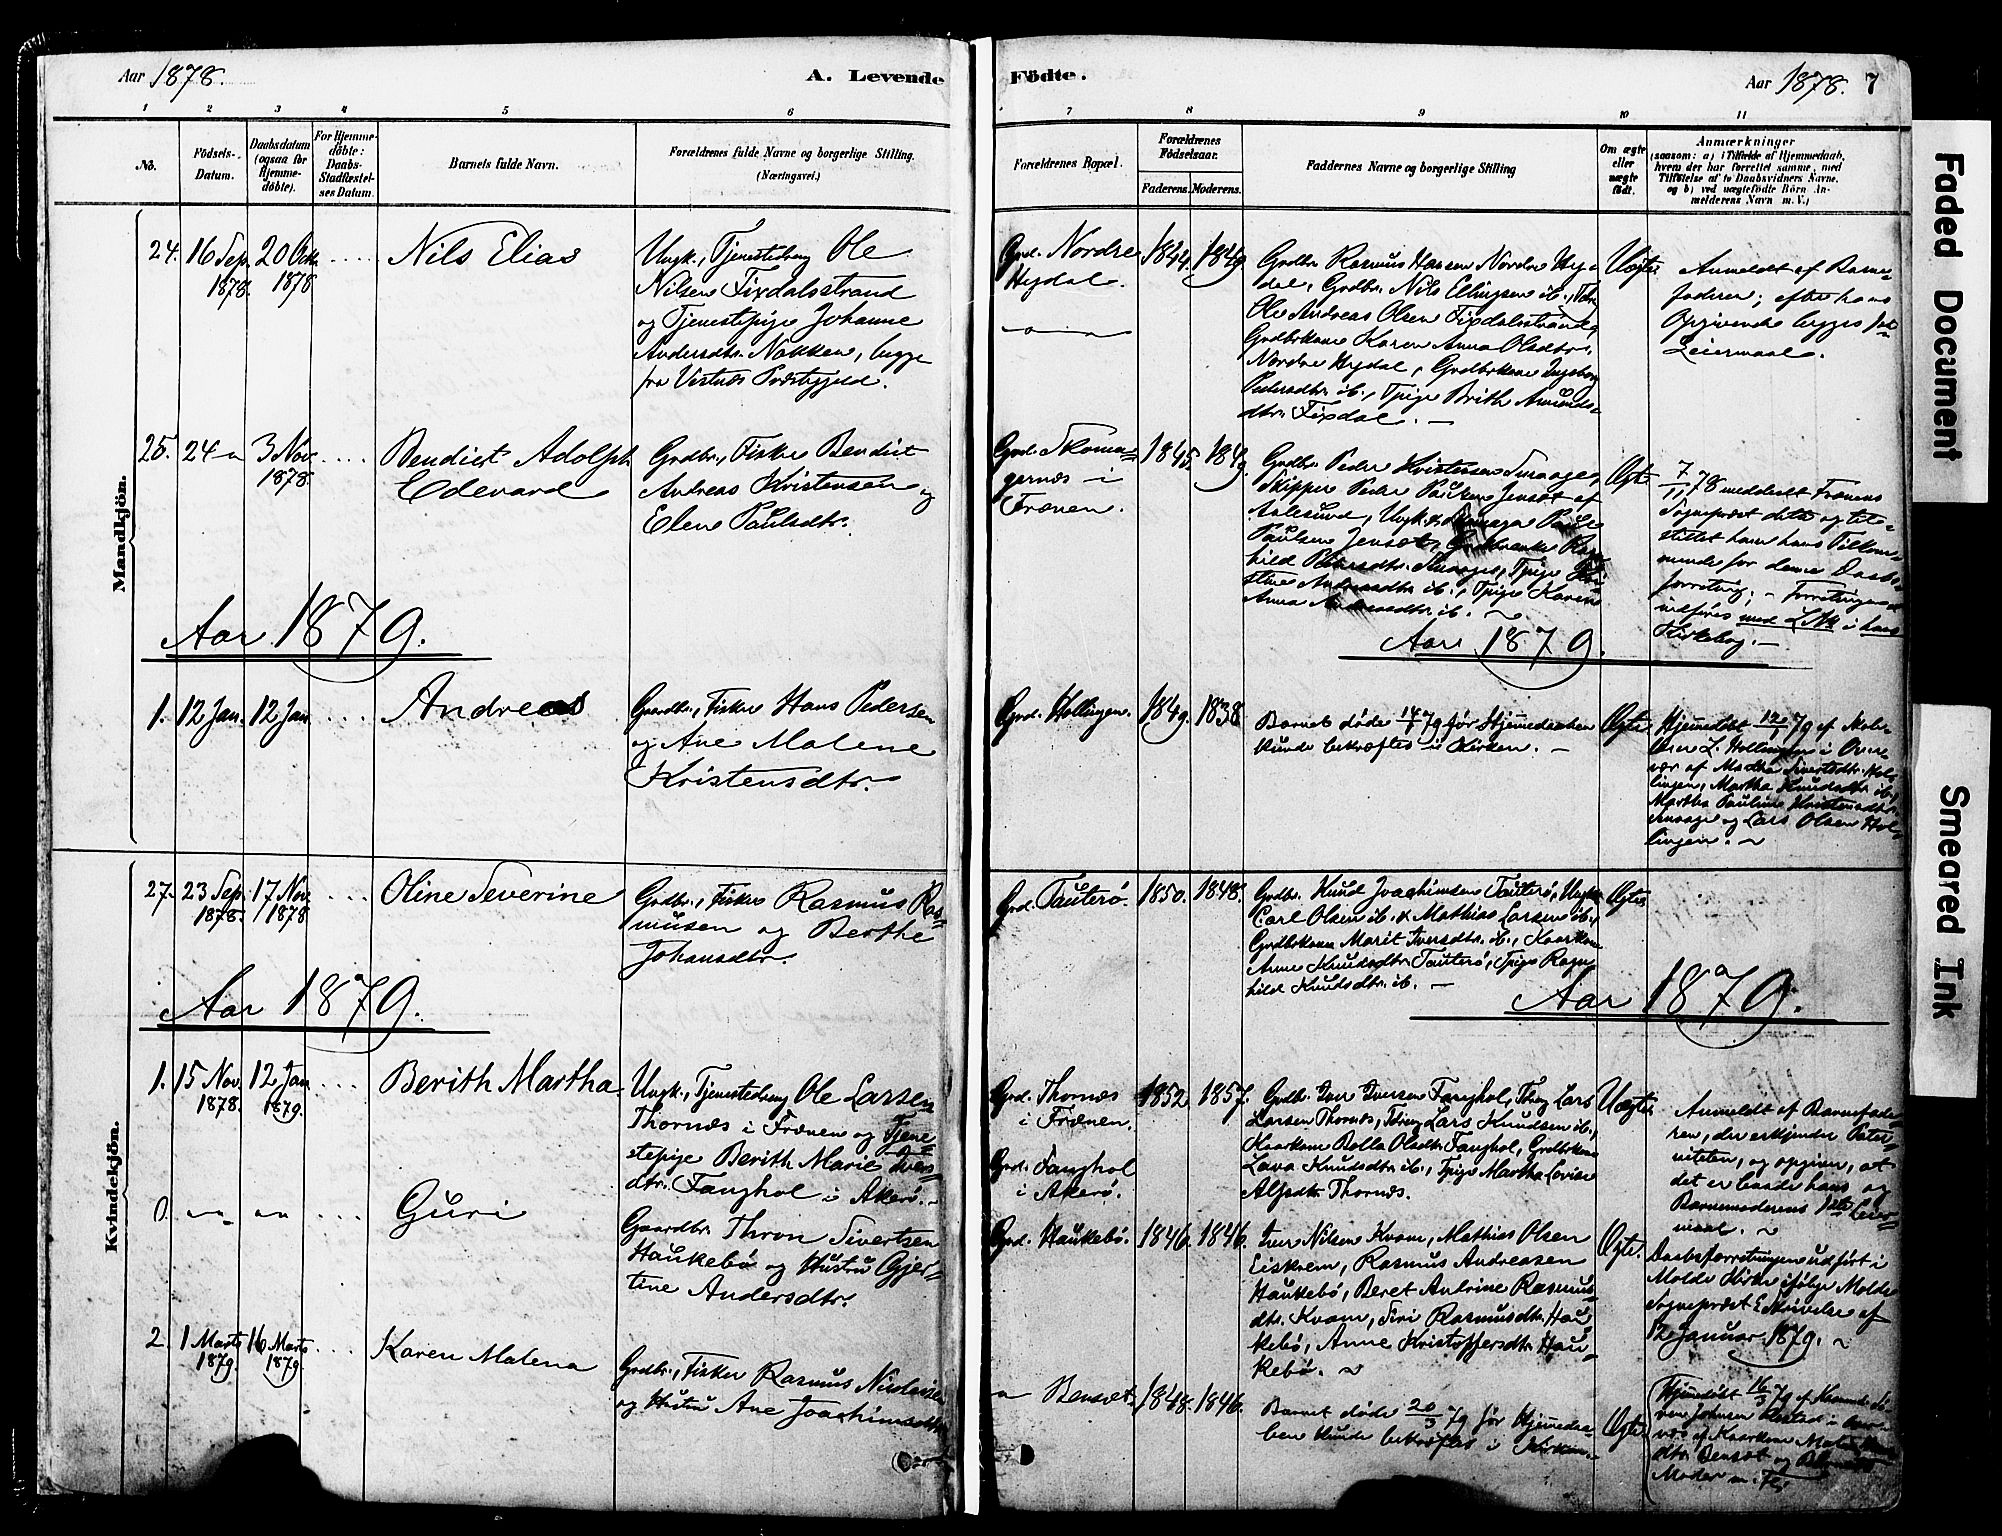 Aar 1878.
A. Levende
Födte.
Aar 1878. 7
1 2 3 4 5 6
7 8 9 10 11
No.
Födsels-
Datum.
Daabsdatum
(ogsaa for
Hjemme-
döbte).
For Hjemme-
döbte:
Daabs-
Stadfæstel-
ses Datum.
Barnets fulde Navn.
Forældrenes fulde Navne og borgerlige Stilling.
(Næringsvei.)
Forældrenes Bopæl.
Forældrenes
Födselsaar.
Faderens. Moderens.
Faddernes Navne og borgerlige Stilling
Om ægte
eller
uægte
födt.
Anmærkninger
(saasom: a) i Tilfælde af Hjemmedaab,
hvem der har forrettet samme, med
Tilföielse af to Daabsvidners Navne,
og b) ved uægtefödte Börn An-
melderens Navn m. V.)
Mandkjön.
24. 16 Sep. 1878. 20 Octr. 1878
Nils Elias
Ungk., Tjenestedreng Ole
Nilsen Fixdalsstrand
og Tjenestepige Johanne
Andersdtr. Nakken, begge
fra Vestnæs Præstegjeld.
Grd. Nordre
Hejdal.
1844. 1849.
Grdbr. Rasmus Hansen Nordre Hej-
dal, Grdbr. Nils Ellingsen ib.,
Ole Andreas Olsen Fixdalsstrand,
Grdbrkone Karen Anna Olsdtr.
Nordre Hejdal, Grdbrkone Ingeborg
Pedersdtr. ib., Tpige Brith Amunds-
dtr. Fixdal. -
Uægte
Anmeldt af Barne-
faderen; efter hans
Opgivende begges
Leiermaal.
25. 24 - 3 Nov. 1878.
Bendict Adolph
Edevard
Grdbr., Fisker Bendict
Andreas Kristensen og
Elen Paulsdtr.
Grd. Skoma-
gernæs i
Frænen.
1845. 1849.
Grdbr. Peder Kristensen Smaage,
Skipper Peder Paulsen Jenset af
Aalesund, Ungk.
Paulsen Jenset,
hild Pedersdtr. Smaage, Tpige
stine Andreasdtr. ib., Tpige Karen
Anna Andreasdtr. ib.
Ægte
7/11 78 meddeelt Frænens
Sognepræst dette og til-
stillet ham hans Tilkom-
mende for denne Daabs-
forretning; - Forretningen
indføres med L. Nr. i hans
Kirkebog. -
Aar 1879.
Aar 1879.
1. 12 Jan. 12 Jan
Andreas
Gaardbr., Fisker Hans Pedersen
og Ane Malene
Kristensdtr.
Grd. Hollingen.
1849. 1838.
Barnet døde 14/1 79 før Hjemmedaaben
kunde bekræftes i Kirken. -
Ægte
Hjemmedøbt 12/1 79 af
L. Hollingen i Over-
vær af Martha Sivertsdtr. Hol-
lingen, Martha Knudsdtr. ib.,
Martha Pauline Kristensdtr.
Smaage og Lars Olsen Hol-
lingen.
Kvindekjön.
27. 23 Sep. 1878. 17 Nov. 1878
Oline Severine
Grdbr., Fisker Rasmus Ras-
musen og Berthe
Johansdtr.
Grd. Tauterö.
1850. 1848.
Grdbr. Knud Joachimsen Tauterö, Ungk.
Carl Olsen ib. & Mathias Larsen ib.,
Grdbrkone Marit Iversdtr. ib., Kaarkone
Anne Knudsdtr. Tauterö, Tpige Ragn-
hild Knudsdtr. ib. -
Ægte
Aar 1879.
Aar 1879.
1. 15 Nov. 1878. 12 Jan 1879.
Berith Martha
Ungk., Tjenestedreng Ole Larsen
Thornæs i Frænen og Tjene-
stepige Berith Marie Ivers-
dtr. Fanghol i Akerø.
Grd. Thornæs
i Frænen.
Grd. Fanghol
i Akerø.
1852 1857.
Grdbr. Iver Iversen Fanghol, Tdrng Lars
Larsen Thornæs, Tdreng Lars Knudsen ib.,
Kaarkone Bolla Olsdtr. Fanghol, Grdbrkone
Lava Knudsdtr. ib., Tpige Martha Lovise
Alfsdtr. Thornæs.
Uægte
Anmeldt af Barnefade-
ren, der erkjender Pater-
niteten, og opgiver, at
det er baade hans og
Barnemoderens 1ste Leier-
maal.
0. - -
Guri
Gaardbr. Thron Sivertsen
Haukebø og Hustru Gjer-
tine Andersdtr.
Grd. Haukebö.
1846. 1846.
Iver Nilsen Kvam, Mathias Olsen
Eiskrem, Rasmus Andreasen
Haukebö, Beret Antrine Rasmus-
dtr. Kvam, Siri Rasmusdtr. Hau-
kebö, Anne Kristoffersdtr. Hau-
kebö.
Ægte.
Daabsforretningen udført i
Molde Kirke ifølge Molde
Sognepræst Skrivelse af
12 Januar 1879.
2. 1 Marts 1879. 16 Marts 1879.
Karen Malena
Grdbr., Fisker Rasmus Nicolaisen
og Hustru Ane Joachimsdtr.
Benset.
1848. 1846.
Barnet døde 20/3 79 før Hjemmedaa-
ben kunde bekræftes i Kirken.
Ægte.
Hjemmedøbt 16/3 79 af
Johnsen i Over-
vær af Kaarkone
dtr. Benset og
Moder m. Fl.
Faded Document
Smeared Ink